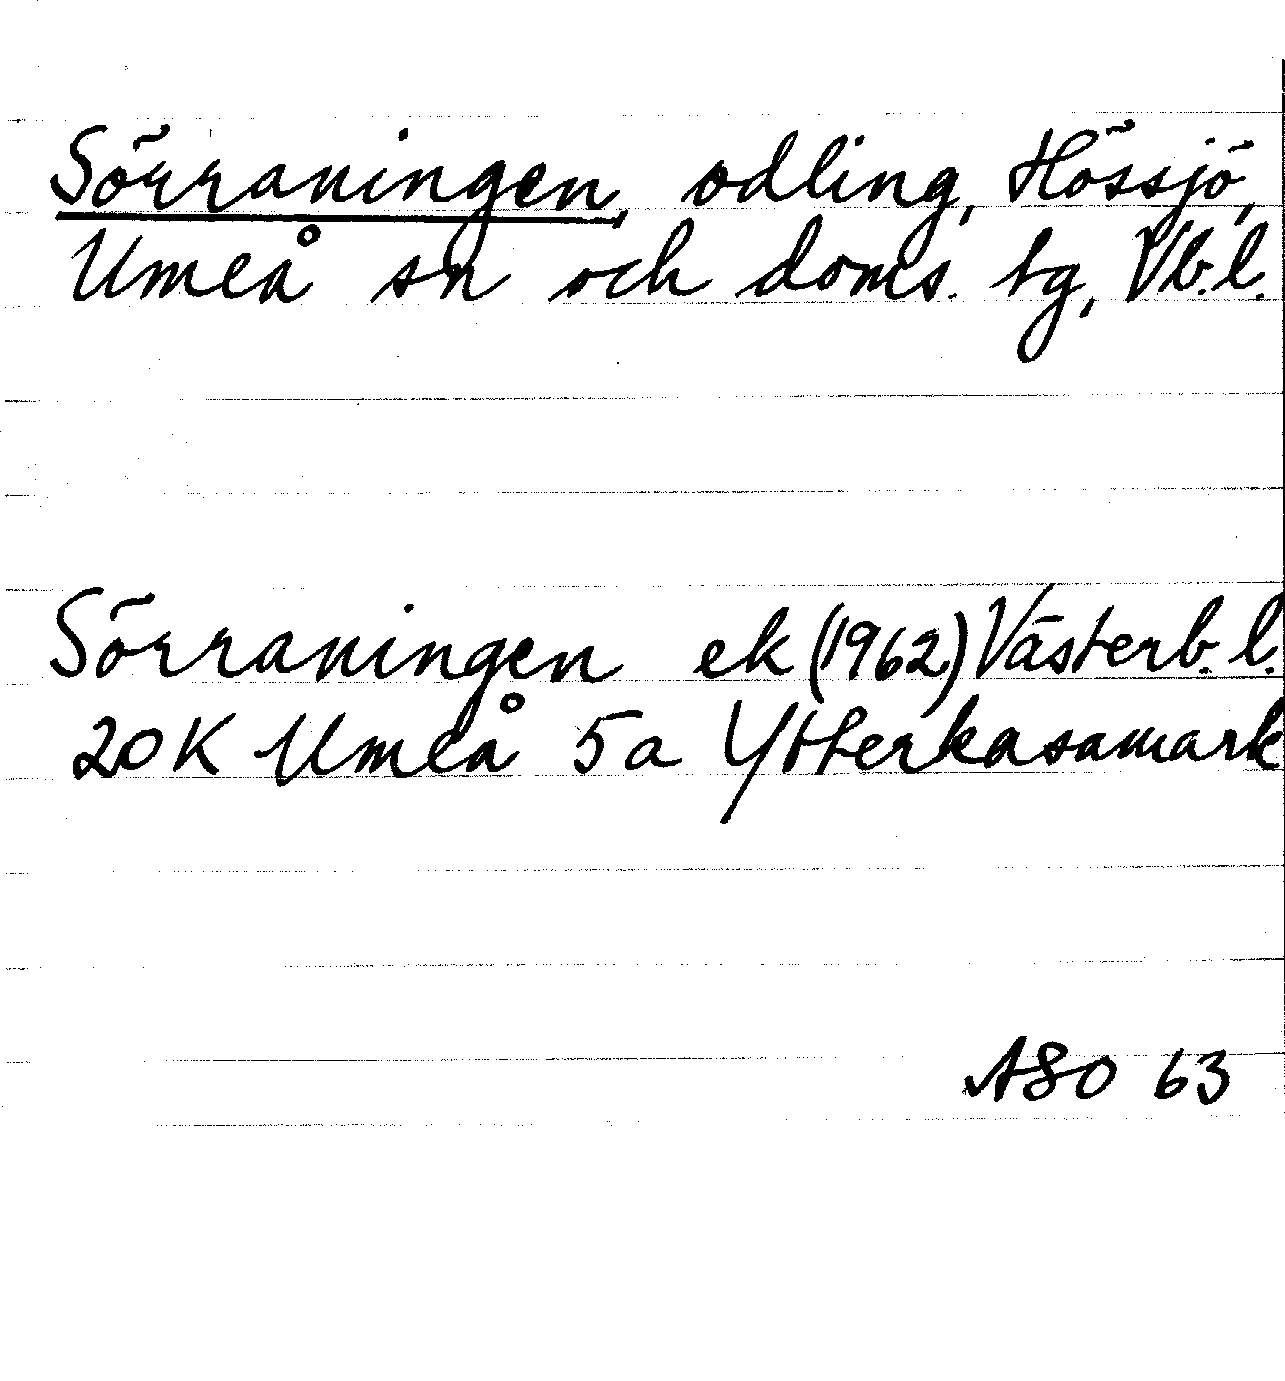 Sörraningen, odling, Hössjö,
Umeå sn och doms. tg, Vb.l.
Sörraningen ek (1962) Västerb. l.
20K Umeå 5a Ytterkasamark
ASO 63